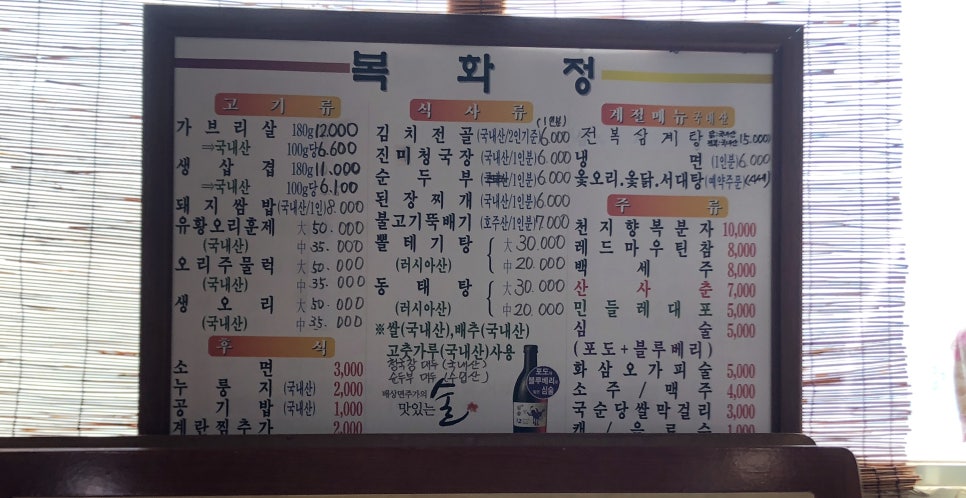 복 화 정
고 기 류
가브리살 180g 12.000
⇒국내산 100g당 6.600
생삼겹 180g 11.000
⇒국내산 100g당 6.100
돼지쌈밥 (국내산/1인) 8.000
유황오리훈제 大 50.000
(국내산) 中 35.000
오리주물럭 大 50.000
(국내산) 中 35.000
생오리 大 50.000
(국내산) 中 35.000
후 식
소면 3,000
누룽지 (국내산) 2,000
공기밥 (국내산) 1,000
계란찜추가 2,000
식 사 류
(1인분)
김치전골 (국내산/2인기준) 6.000
진미청국장 (국내산/1인분) 6.000
순두부 /1인분) 6.000
된장찌개 (국내산/1인분) 6.000
불고기뚝배기 (호주산/1인분) 7.000
뽈테기탕 大 30.000
(러시아산) 中 20.000
동태탕 大 30.000
(러시아산) 中 20.000
※쌀(국내산),배추(국내산)
고춧가루(국내산)사용
청국장 대두 (국내산)
순두부 대두 (수입산)
배상면주가의
맛있는 술
포도와
블루베리의
심술
계절메뉴 국내산
전복삼계탕 15.000
냉면 (1인분) 6,000
옻오리.옻닭.서대탕 (예약주문)
주 류
천지향복분자 10,000
레드마우틴참 8,000
백세주 8,000
산사춘 7,000
민들레대포 5,000
심술 5,000
(포도+블루베리)
화삼오가피술 5,000
소주/맥주 4,000
국순당쌀막걸리 3,000
캔/음료수 1,000